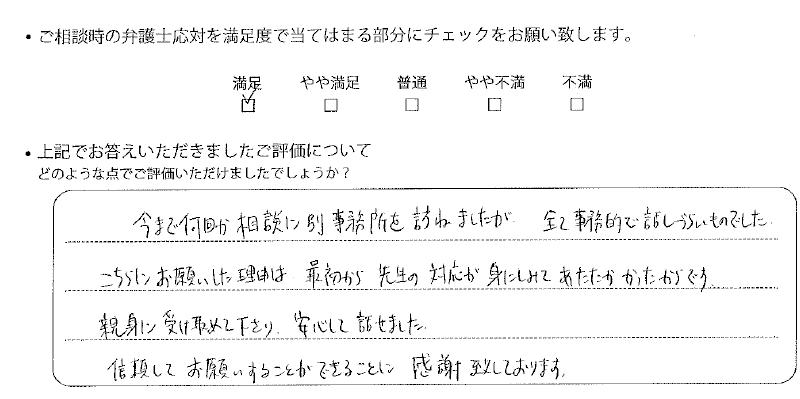 ・ご相談時の弁護士応対を満足度で当てはまる部分にチェックをお願い致します。
満足 やや満足 普通 やや不満 不満
☑ □ □ □ □
・上記でお答えいただきましたご評価について
どのような点でご評価いただけましたでしょうか？
今まで何回か相談に別事務所を訪ねましたが 全て事務的で話しづらいものでした。
こちらにお願いした理由は 最初から 先生の対応が身にしみてあたたかかったからです。
親身に受け取めて下さり、安心して話せました。
信頼してお願いすることができることに 感謝致しております。